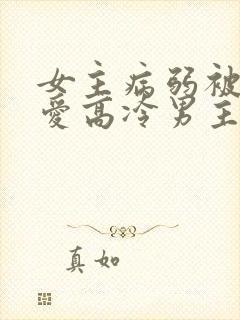 女主病弱被
爱高冷男主
真如